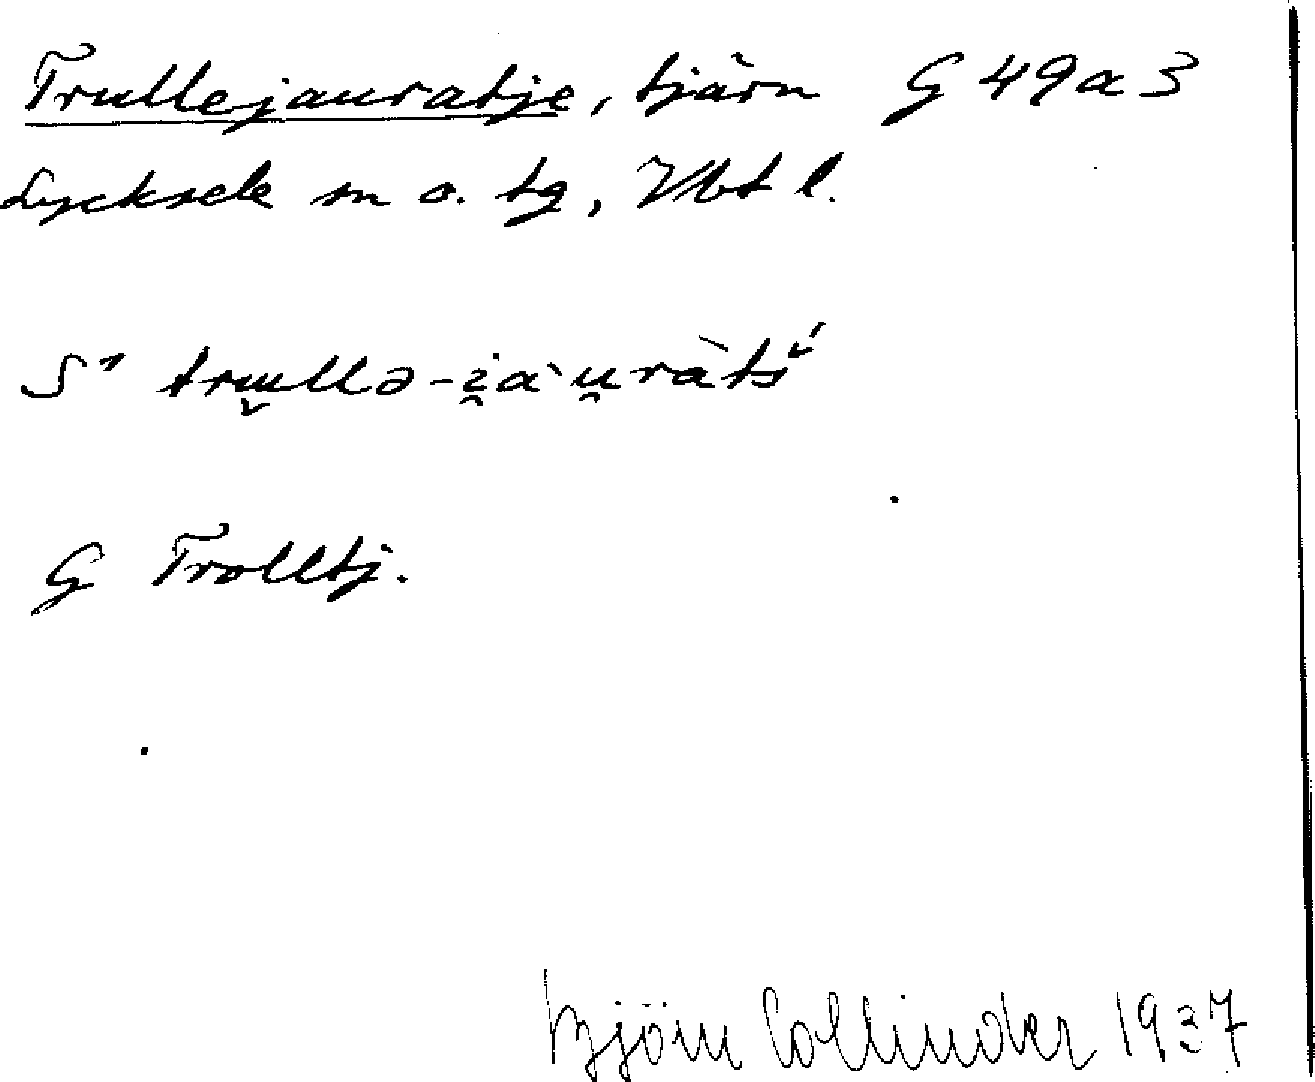 Trullejauratje, tjärn G 49a3
Lycksele sn o. tg, Vbt l.
S¹ trɯ̬llə-i̯a`u̯ràtš́
G Trolltj.
Björn Collinder 1937